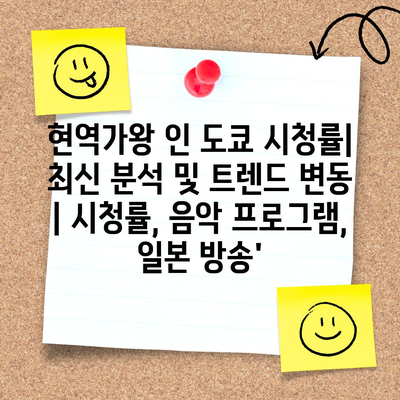 현역가왕 인 도쿄 시청률|
최신 분석 및 트렌드 변동
| 시청률, 음악 프로그램,
일본 방송'